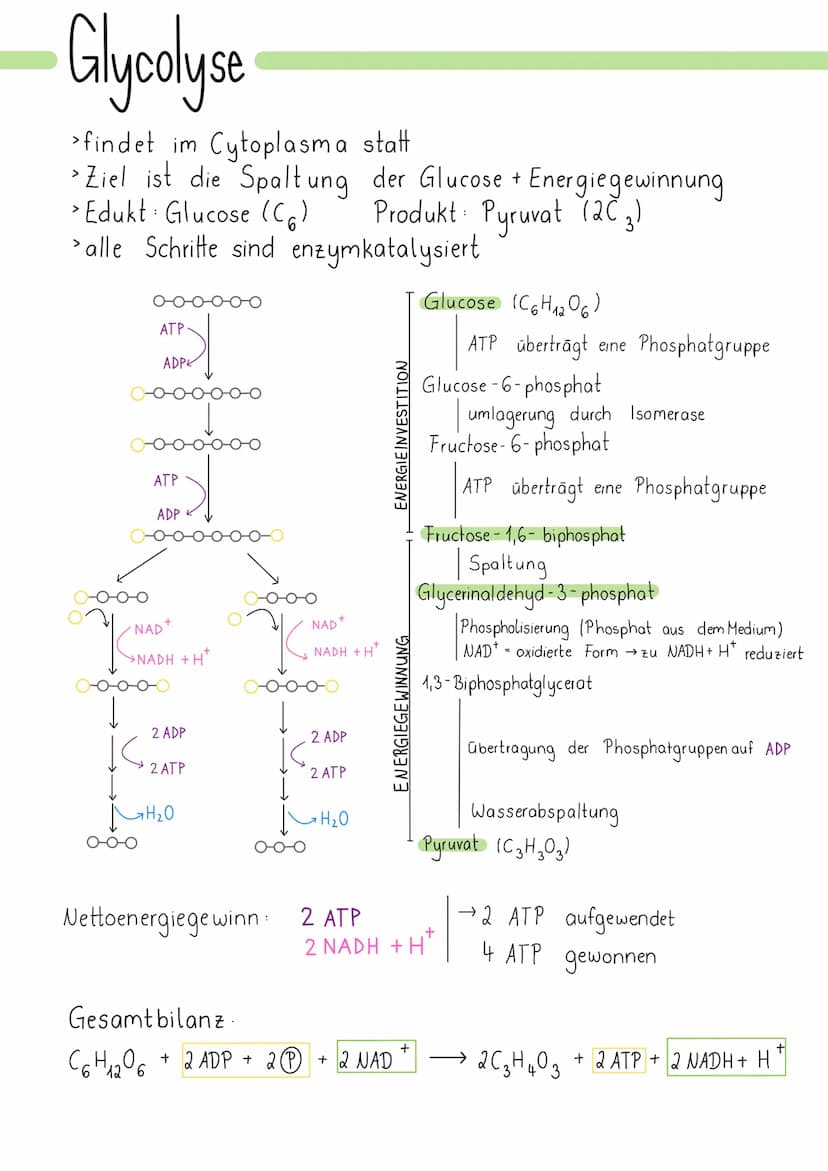 Glycolyse
>findet im Cytoplasma statt
>Ziel ist die Spaltung der Glucose + Energiegewinnung
>Edukt: Glucose (C₆) Produkt: Pyruvat (2C₃)
>alle Schritte sind enzymkatalysiert
ATP
ADP
ATP
ADP
NAD⁺
NADH + H⁺
2 ADP
2 ATP
H₂O
NAD⁺
NADH + H⁺
2 ADP
2 ATP
H₂O
ENERGIEINVESTITION
ENERGIEGEWINNUNG
Glucose (C₆H₁₂O₆)
ATP überträgt eine Phosphatgruppe
Glucose-6-phosphat
umlagerung durch Isomerase
Fructose-6-phosphat
ATP überträgt eine Phosphatgruppe
Fructose-1,6-biphosphat
Spaltung
Glycerinaldehyd-3-phosphat
Phospholisierung (Phosphat aus dem Medium)
NAD⁺ = oxidierte Form → zu NADH + H⁺ reduziert
1,3-Biphosphatglycerat
Übertragung der Phosphatgruppen auf ADP
Wasserabspaltung
Pyruvat (C₃H₃O₃)
Nettoenergiegewinn: 2 ATP → 2 ATP aufgewendet
2 NADH + H⁺ 4 ATP gewonnen
Gesamtbilanz:
C₆H₁₂O₆ + 2 ADP + 2 Ⓟ + 2 NAD⁺ → 2C₃H₄O₃ + 2 ATP + 2 NADH + H⁺